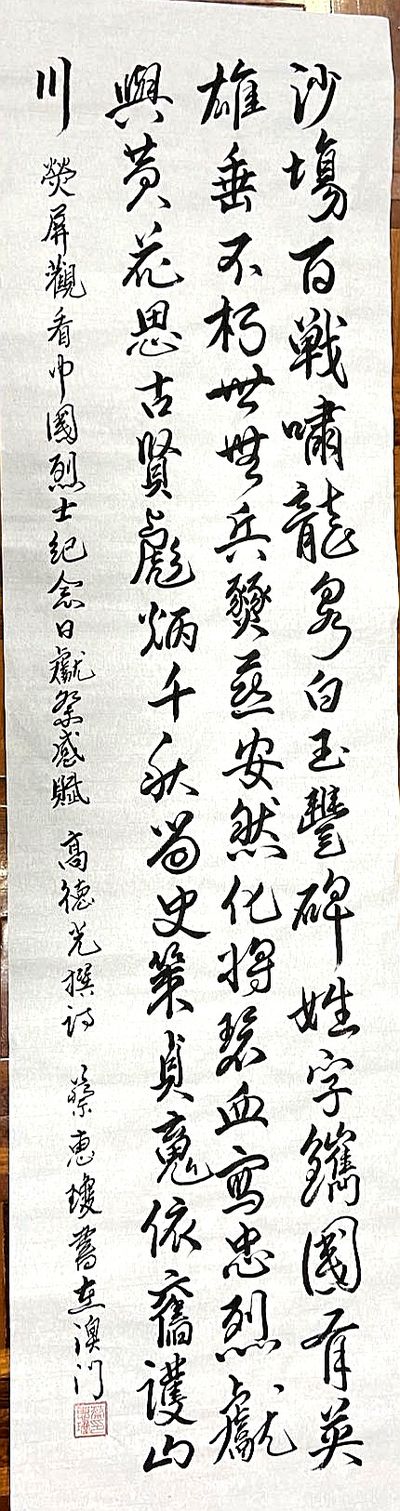 沙場百戰嘯龍泉白玉豐碑姓字鐫國有英
雄垂不朽世無兵燹安然化將碧血寫忠烈獻
與黃花思古賢彪炳千秋留史策貞魂依舊護山
川
熒屏觀看中國烈士紀念日獻祭感賦 高德光撰詩 蔡惠瓊書在澳門